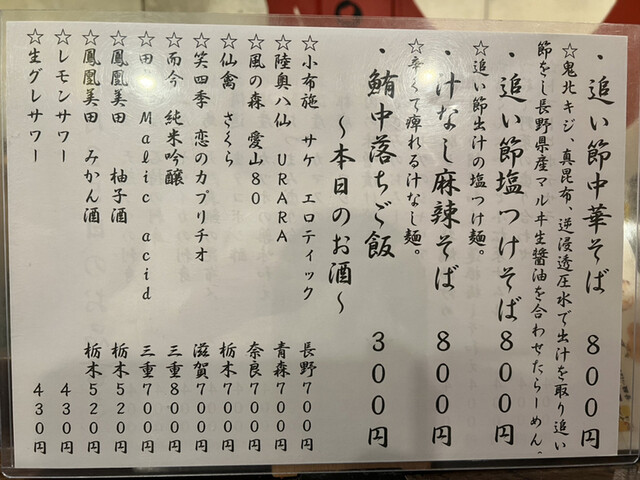 ・追い節中華そば 800円
☆鬼北キジ、真昆布、逆浸透圧水で出汁を取り追い
節をし長野県産マルヰ生醤油を合わせたらーめん。
・追い節塩つけそば 800円
☆追い節出汁の塩つけ麺。
・汁なし麻辣そば 800円
☆辛くて痺れる汁なし麺。
・鮪中落ちご飯 300円
〜本日のお酒〜
☆小布施 サケ エロティック 長野700円
☆陸奥八仙 URARA 青森700円
☆風の森 愛山80 奈良700円
☆仙禽 さくら 栃木700円
☆笑四季 恋のカプリチオ 滋賀700円
☆而今 純米吟醸 三重800円
☆田 Malic acid 三重700円
☆鳳凰美田 柚子酒 栃木520円
☆鳳凰美田 みかん酒 栃木520円
☆レモンサワー 430円
☆生グレサワー 430円